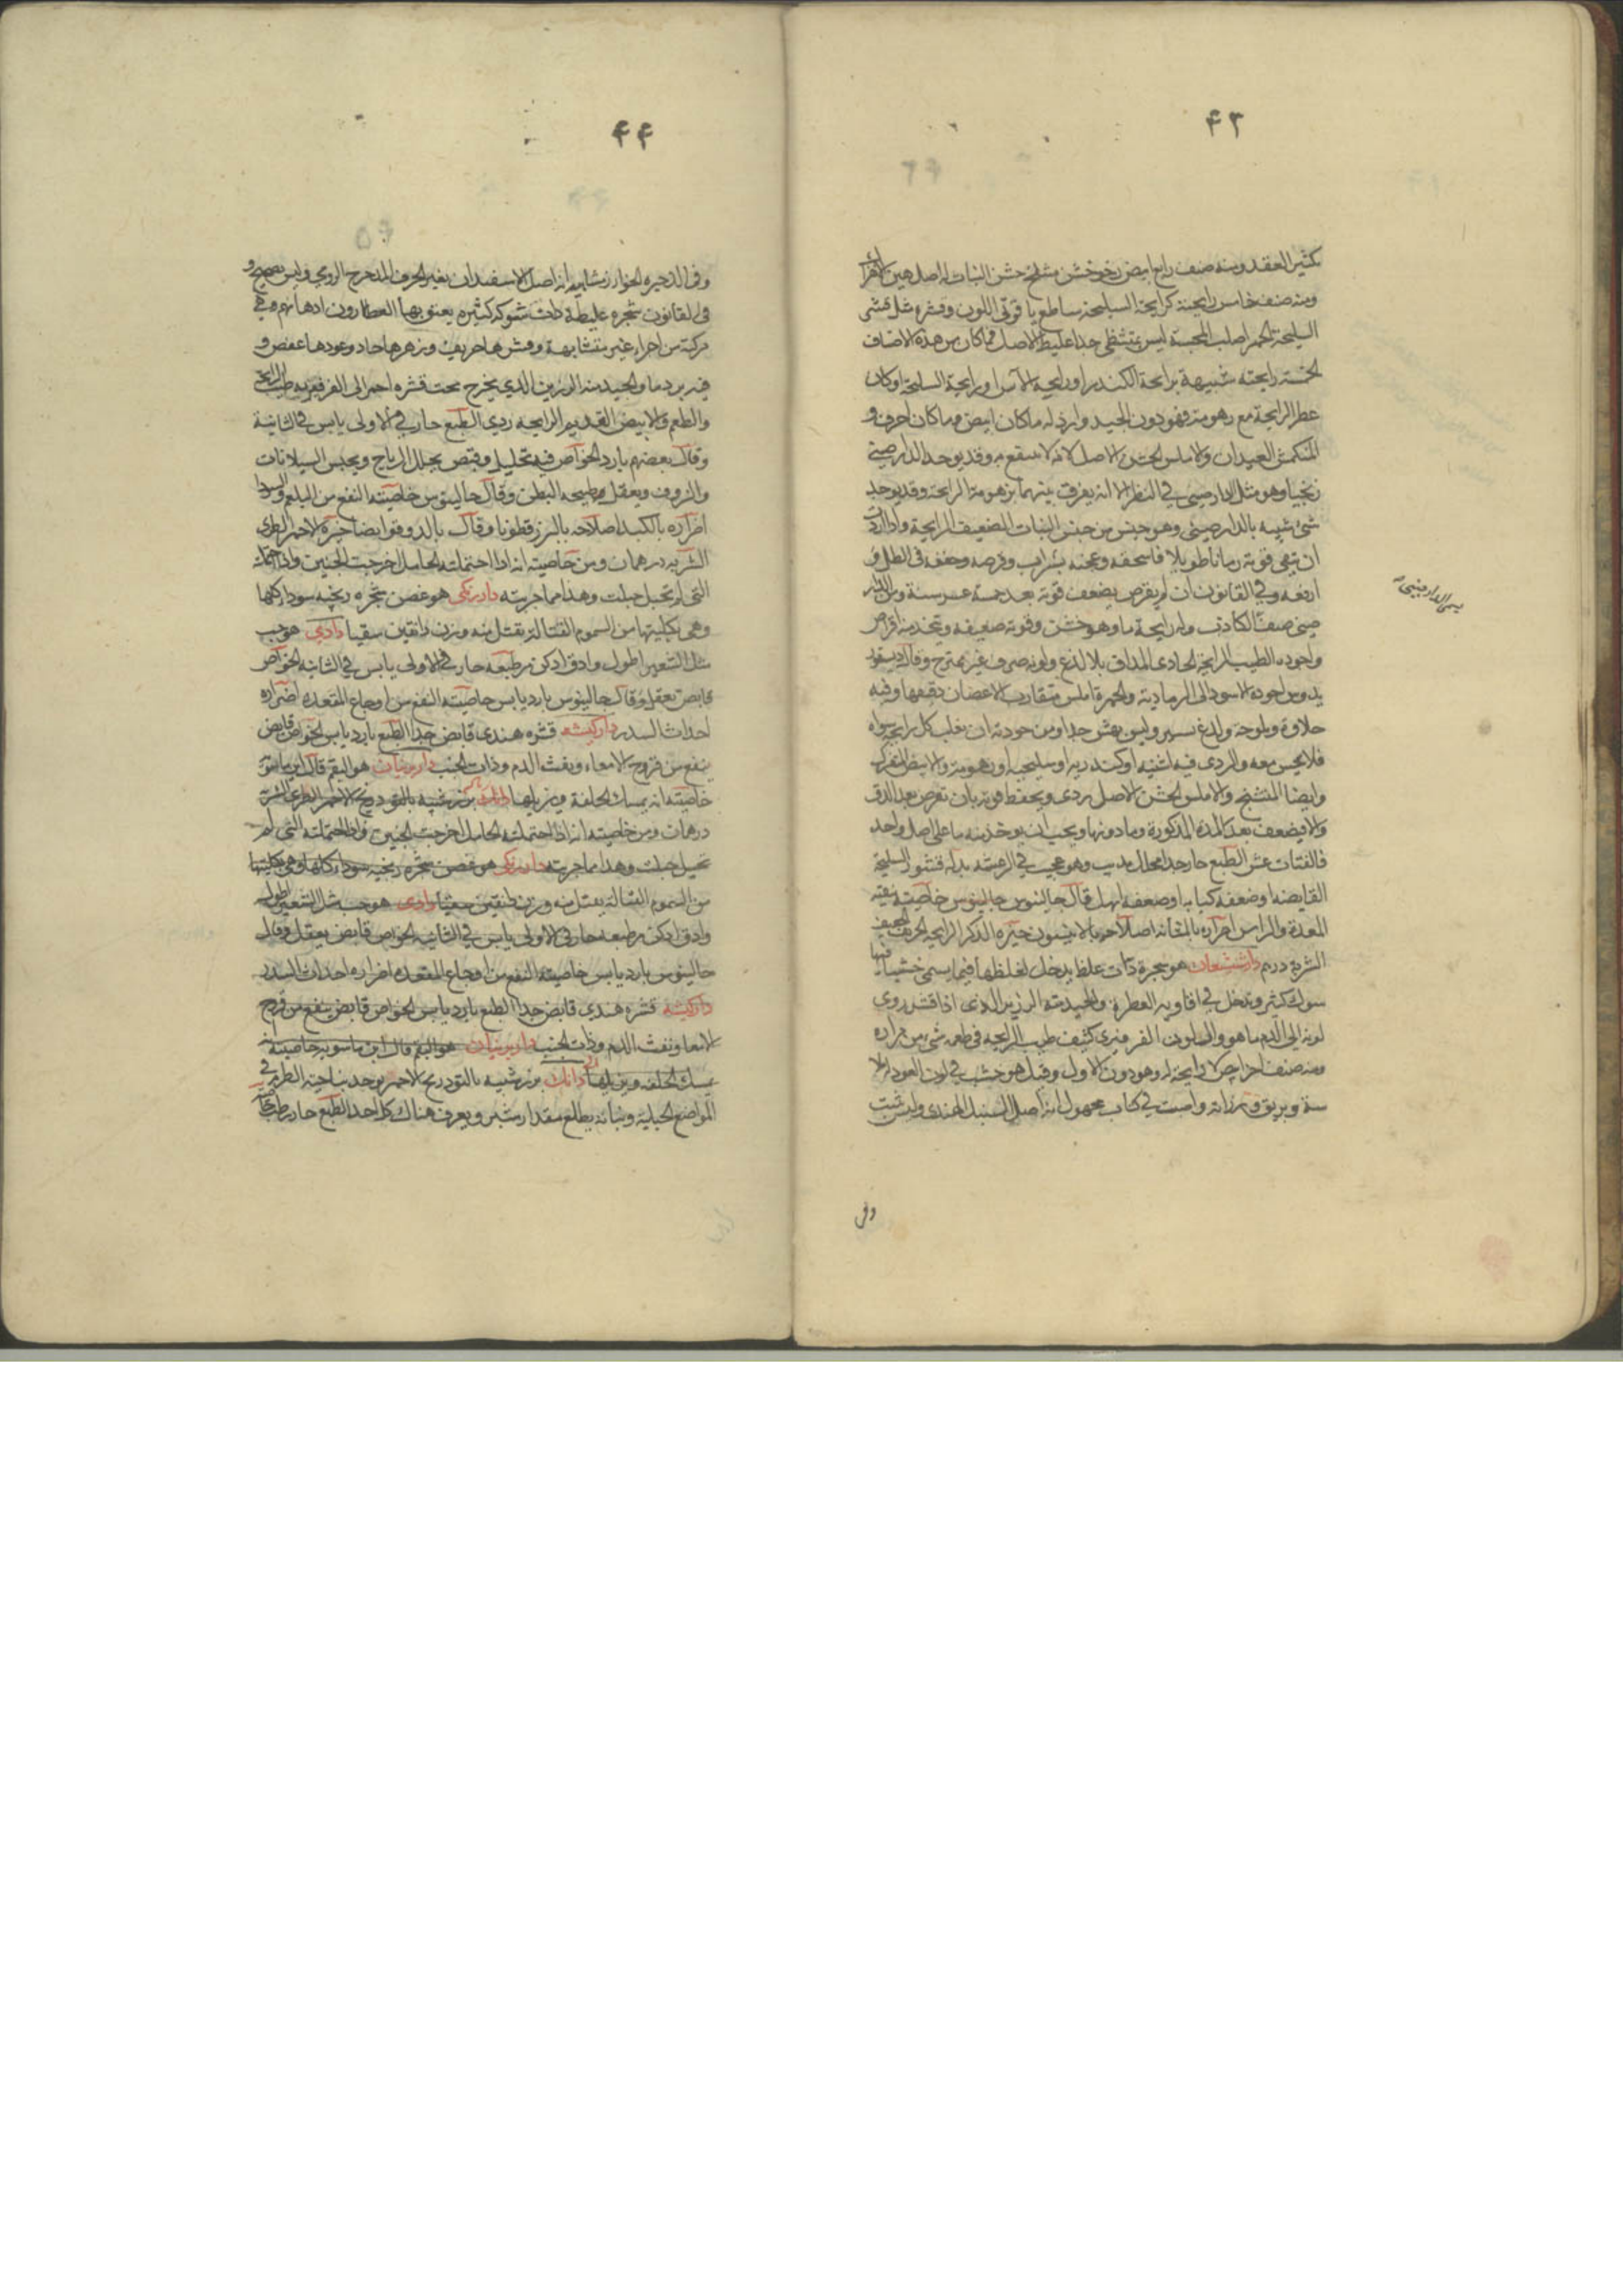 ۴۳
كثير العقد ومنه صنف رابع ابيض رخو خشن النبات له اصل هين الانفراك
ومنه صنف خامس رايحته كرايحة السليخه ساطع ياقوتي اللون وقشره مثل قشر
السليخة الحمرا صلب المجسة ليس بمتشظي جدا غليظ الاصل فما كان من هذه الاصناف
الخمسة رايحته شبيهة برايحة الكندر او رايحة الاس او رايحة السليخة او كان
عطر الرايحة مع زهومة فهو دون الجيد وارذله ما كان ابيض وما كان اجوف و
المنكمش العيدان والاملس الخشن الاصل لانه لا ينتفع به وقد يوجد الدارصيني
وهو مثل الدارصيني في النظر الا انه يفرق بينهما بزهومة الرايحة وقد يوجد
شئ شبيه بالدارصيني وهو جنس من جنس النبات الضعيف الرايحة واذا اردت
ان تبقى قوته زمانا طويلا فاسحقه وعجنه بشراب وقرصه وجففه في الظل و
ارفعه وفي القانون ان لم يقرص يضعف قوته بعد خمسة عشر سنة ومن الدار
صيني صنف الكاذب وله رايحة ما وهو خشن وقوته ضعيفه وتتخذ منه اقراص
واجوده الطيب الرايحة الحاد المذاق بلا لذع ولونه صرف غير ممتزج وقال ديسقو
ريدوس اجوده الاسود الى الرمادية والحمرة املس متقارب الاغصان دقيقها وفيه
حلاوة وملوحة ولذع يسير وليس بهش جدا ومن جودته ان يغلب كل رايحة سواه
فلا يحس معه والردي فيه اشنيه او كندريه او سليخيه او زهومة والابيض المنفرك
وايضا المتشنج والاملس الخشن الاصل ردى ويحفظ قوته بان تقرص بعد الدق
والا فيضعف بعد المدة المذكورة وما دونها ويجب ان يوخذ منه ما على اصل واحد
فالفتات غش الطبع حار جدا محلل مذيب وهو عجيب في الرعشه بدله قشور السليخة
القابضه او ضعفه كبابه او ضعفه ابهل قال جالينوس جالينوس خاصيته ينقي
المعدة والراس اضراره بالمثانه اصلاحه بالانيسون خيره الذكر الرايحه الحريف
الشربة درهم دارشيشعان هو شجرة ذات غلظ يدخل لغلظها فيما يسمى خشبا فيها
شوك كثير ويدخل في افاويه العطرة والجيد منه الرزين الذي اذا قشر روى
لونه الى الدم ما هو والى لون الفرفيري كثيف طيب الرايحه في طعمه شئ من مراره
ومنه صنف اخر ابيض لا رايحة له وهو دون الاول وقيل هو خشب في لون العود له ملا
سة وبريق ورزانة واصبت في كتاب مجهول انه اصل السنبل الهندي وليس بثبت
وفي
يسمى الدارصيني
۴۴
وفى الذخيره الخوارزمشاهيه انه اصل الاسفندان بغير الحرف المدحرج الرومي وليس بصحيح و
فى القانون شجره غليظة ذات شوكه كثيره يعنو بها العطارون ادهانهم وهي
مركبة من اجزاء غير متشابهة وقشرها حريف وزهرها حاد وعودها عفص و
فيه برد ما والجيد منه الرزين الذي يخرج تحت قشره احمر الى الفرفيريه طيب الرايحة
والطعم والابيض العديم الرايحه ردي الطبع حار في الاولى يابس في الثانية
وقال بعضهم بارد الخواص فيه تحليل وقبض يحلل الرياح ويحبس السيلانات
والنزوف ويعقل طبيخه البطن وقال جالينوس خاصيته النفع من البلغم والسودا
اضراره بالكبد اصلاحه بالبزر قطونا وقال بالدوقو ايضا خيره الاحمر الطرى
الشربه درهمان ومن خاصيته انه اذا احتملته الحامل اخرجت الجنين واذا احتملته
التى لم تحبل حبلت وهذا مما جربته دادرنكى هو غصن شجره زنجيه سودا كلها
وهي بكليتها من السموم القتالة تقتل منه وزن دانقين سقيا دادي هو حب
مثل الشعير اطول وادق ادكن مر طبعه حار في الاولى يابس في الثانيه الخواص
قابض يعقل وقال جالينوس بارد يابس خاصيته النفع من اوجاع المقعده اضراره
احداث السدر داركيسه قشره هندى قابض جدا الطبع بارد يابس الخواص قابض
ينفع من قروح الامعاء ونفث الدم وذات الجنب داربرنيان هو البقم قال ابن ماسويه
خاصيته انه يمسك الخلفة ويزيلها دانك بزر شبيه بالتودرنج الاحمر الطرى الشربة
درهمان ومن خاصيته انه اذا احتملته الحامل اخرجت الجنين واذا احتملته التى لم
تحبل حبلت وهذا مما جربته دادرنكى هو غصن شجره زنجيه سودا كلها وهي بكليتها
من السموم القتالة يقتل منه وزن دانقين سقيا دادى هو حب مثل الشعير اطول
وادق ادكن مر طبعه حار في الاولى يابس في الثانيه الخواص قابض يعقل وقال
جالينوس بارد يابس خاصيته النفع من اوجاع المقعده اضراره احداث السدر
داركيسه قشره هندى قابض جدا الطبع بارد يابس الخواص قابض ينفع من قروح
الامعا ونفث الدم وذات الجنب داربرنيان هو البقم قال ابن ماسويه خاصيته انه
يمسك الخلفه ويزيلها دانك بزر شبيه بالتودرنج الاحمر يوجد بناحية الطرم في
المواضع الجبلية ونباته يطلع مقدار شبر ويعرف هناك كل احد الطبع حار رطب